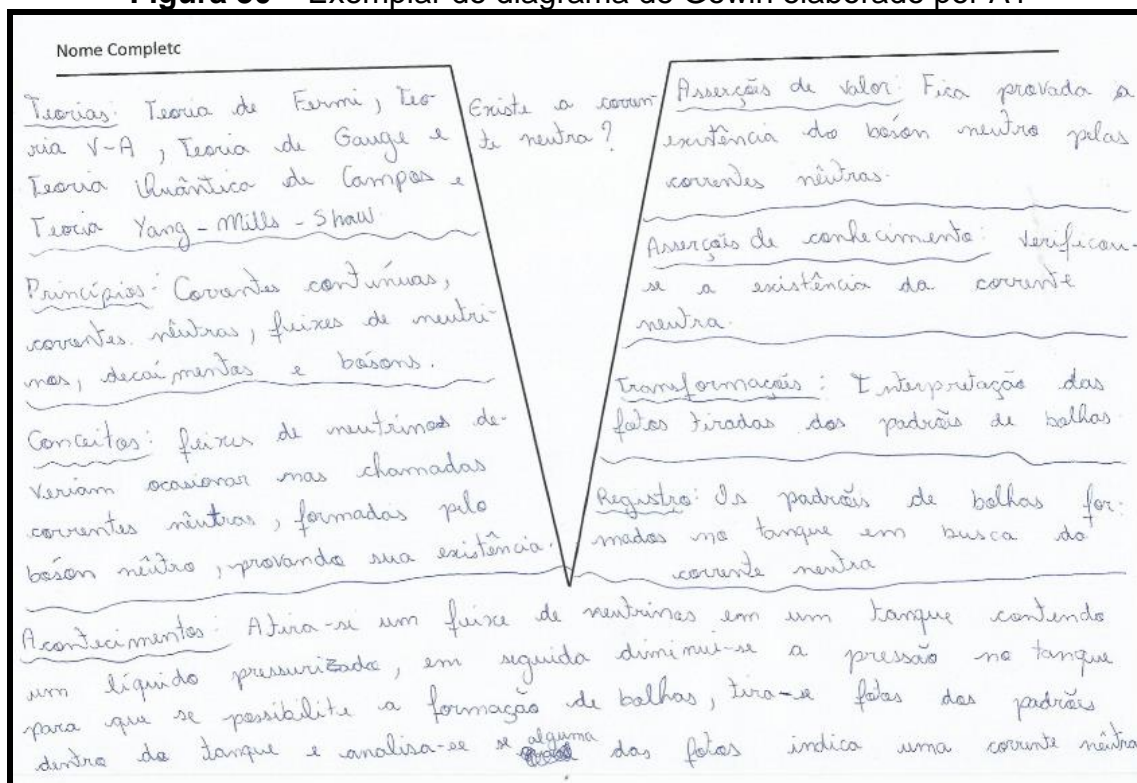 Nome Completo
Teorias: Teoria de Fermi, Teo-
ria V-A, Teoria de Gauge e
Teoria Quântica de Campos e
Teoria Yang-Mills-Shaw
Princípios: Correntes contínuas,
correntes nêutras, feixes de neutri-
nos, decaimentos e bósons.
Conceitos: feixes de neutrinos de-
veriam ocasionar nas chamadas
correntes nêutras, formadas pelo
bóson nêutro, provando sua existência.
Existe a corren-
te neutra?
Asserções de valor: Fica provada a
existência do bóson neutro pelas
correntes nêutras.
Asserções de conhecimento: Verificou-
se a existência da corrente
neutra.
Transformações: Interpretação das
fotos tiradas dos padrões de bolhas
Registro: Os padrões de bolhas for-
mados no tanque em busca da
corrente neutra
Acontecimentos: Atira-se um feixe de neutrinos em um tanque contendo
um líquido pressurizado, em seguida diminui-se a pressão no tanque
para que se possibilite a formação de bolhas, tira-se fotos dos padrões
dentro do tanque e analisa-se se alguma das fotos indica uma corrente nêutra